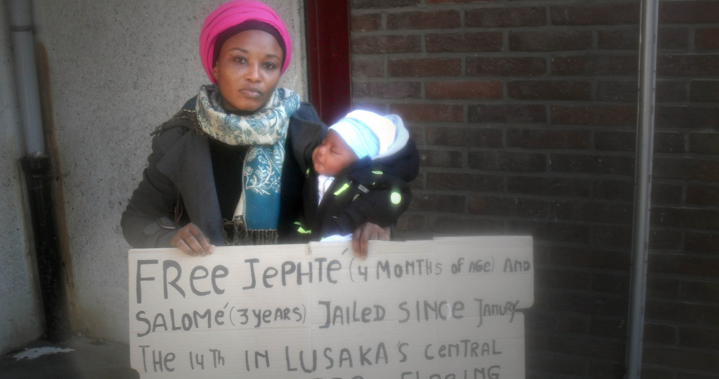 FREE JEPHTÉ (4 MONTHS of AGE) AND
SALOMÉ (3 YEARS) JAILED SINCE
THE 14TH IN LUSAKA'S CENTRAL